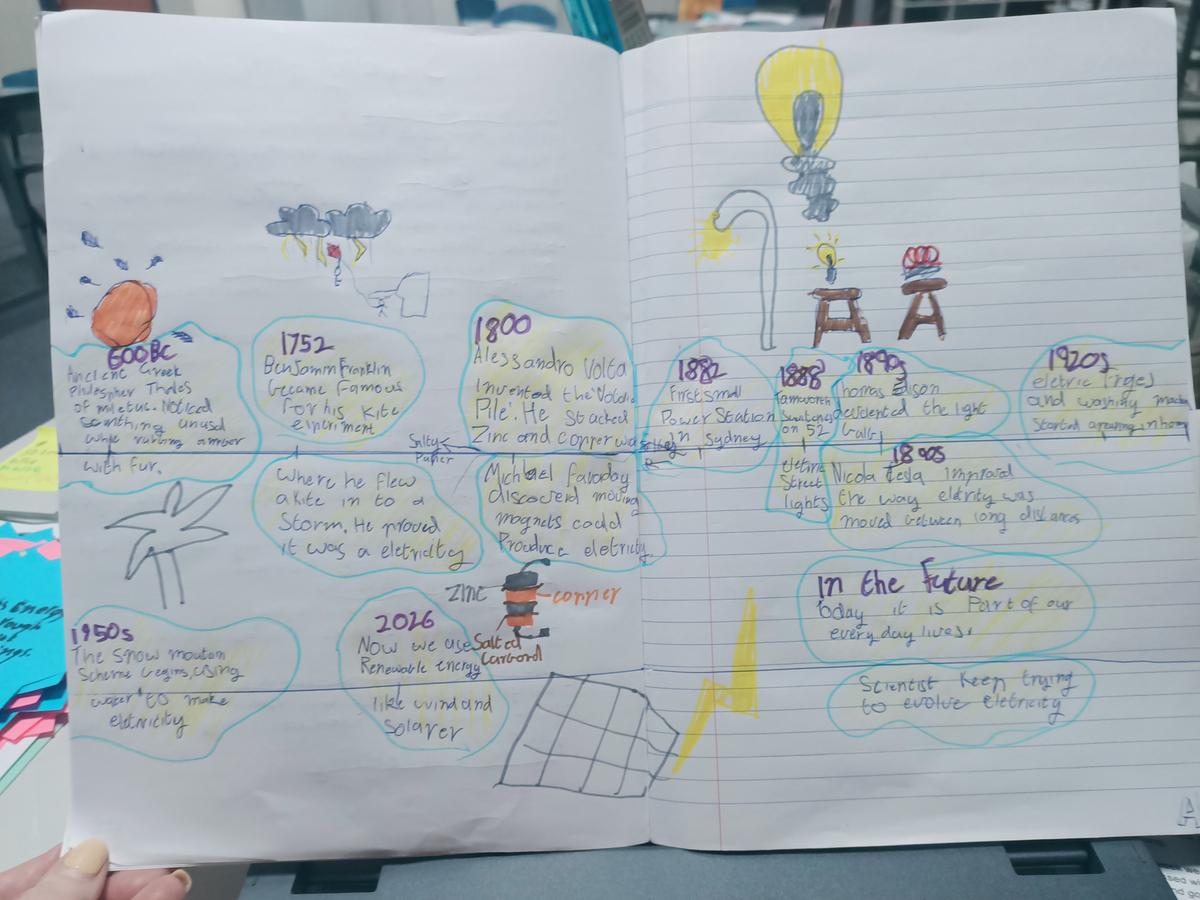 600BC
Ancient Greek
Philospher Thales
of miletus. Noticed
something unusual
while rubing amber
with fur.
1752
Benjamin Franklin
became famous
for his kite
experiment
Where he flew
a kite in to a
Storm. He proved
it was a eletridity
1800
Alessandro Volta
invented the Voltaic
Pile. He stacked
Zinc and copper
Salty
Paper
Michael faraday
discoverd moving
magnets could
Produce eletricity
Zinc
copper
Salted
Carbord
1882
First small
Power Station
in Sydney
1888
Tamworth
on 52
Street
lights
1890s
Thomas Edison
the light
1890s
Nicola Tesla improved
the way eletrity was
moved between long distances
1920s
eletric
and washing
Started in
In the Future
Today it is Part of our
every day lives.
Scientist keep trying
to evolve eletricity
1950s
The snow
Scheme begins, using
water to make
eletricity
2026
Now we use
Renewable energy
like wind and
Solarer
A